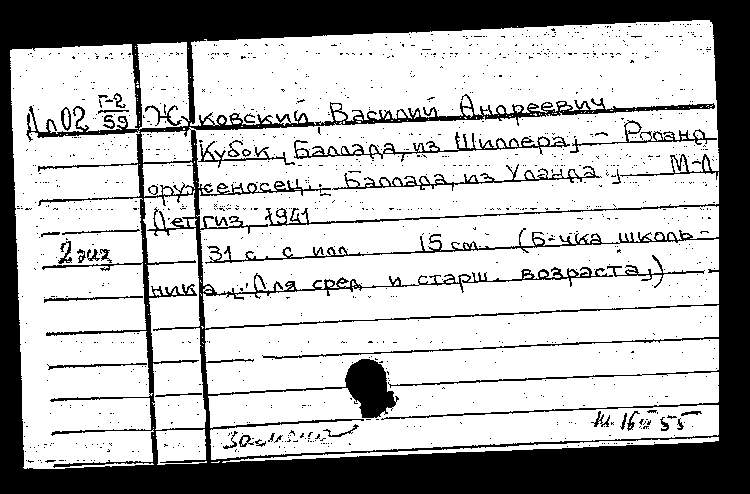 Дл02 Г-2/59 Жуковский, Василий Андреевич.
Кубок, Баллада, из Шиллера; - Роланд
оруженосец; Баллада, из Уланда; М-Л,
Детгиз, 1941
2 экз 31 с. с илл. 15 см. (Б-чка школь-
ника, : Для сред. и старш. возраста,)
замена
16 III 55